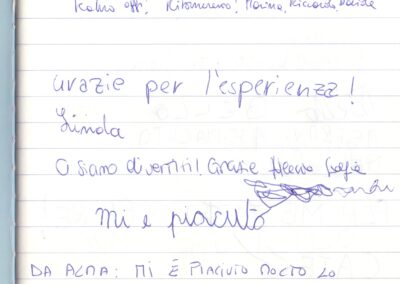 Ritorneremo! Marina, Riccardo, Davide
Grazie per l'esperienza!
Linda
Ci siamo divertiti! Grazie
mi e piaciuto
DA ALMA: MI È PIACIUTO MOLTO LO